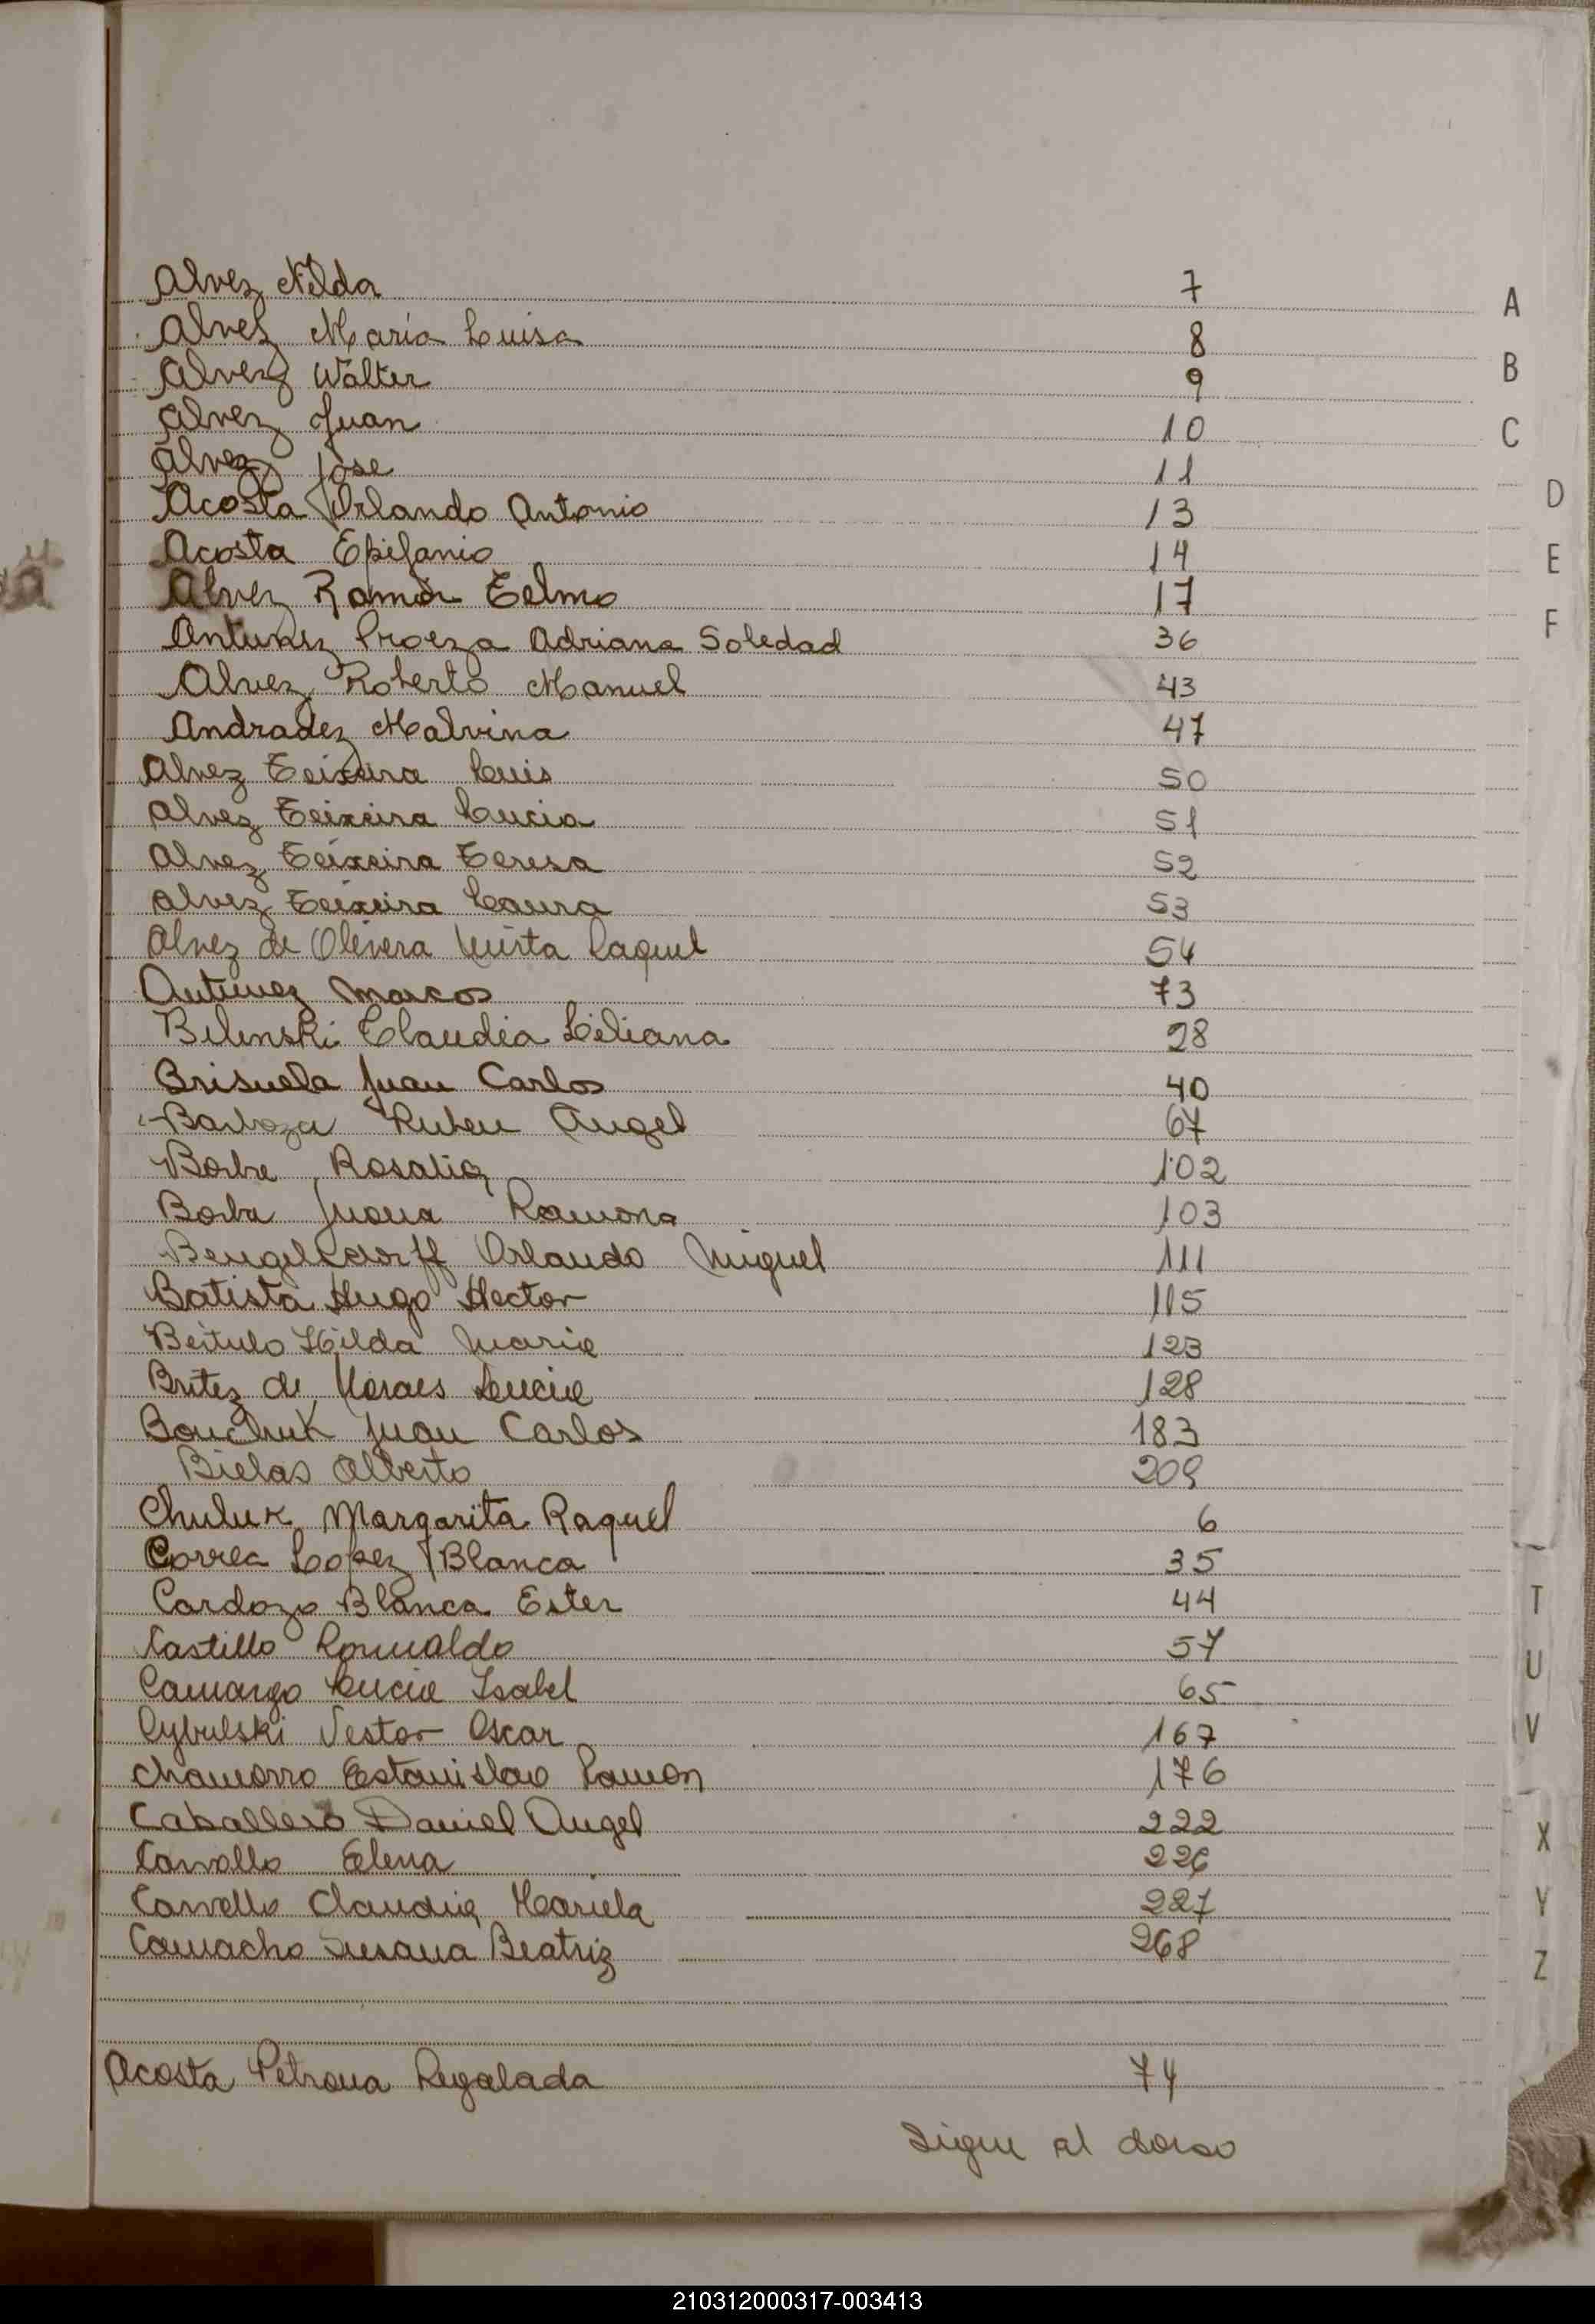 Alvez Nilda 7
Alvez María Luisa 8
Alvez Walter 9
Alvez Juan 10
Alvez Jose 11
Acosta Orlando Antonio 13
Acosta Epifanio 14
Alvez Ramón Telmo 17
Antunez Proeza Adriana Soledad 36
Alvez Roberto Manuel 43
Andradez Malvina 47
Alvez Teixeira Luis 50
Alvez Teixeira Lucia 51
Alvez Teixeira Teresa 52
Alvez Teixeira Laura 53
Alvez de Olivera Mirta Raquel 54
Antunez Marcos 73
Bilenski Claudia Liliana 28
Brisuela Juan Carlos 40
Barboza Ruben Angel 67
Borba Rosalia 102
Borba Juana Ramona 103
Bengelsdorff Orlando Miguel 111
Batista Hugo Hector 115
Hilda Maria 123
Britez de Moraes Lucia 128
Bouchuk Juan Carlos 183
Bielas Alberto 209
Chuluk Margarita Raquel 6
Correa Lopez Blanca 35
Cardozo Blanca Ester 44
Castillo Romualdo 57
Camargo Lucia Isabel 65
Cybulski Nestor Oscar 167
Chamorro Estanislao Ramon 176
Caballero Daniel Angel 222
Carvallo Elena 226
Carvello Claudia Mariela 227
Camacho Susana Beatriz 268
Acosta Petrona Regalada 74
Sigue al dorso
A
B
C
D
E
F
T
U
V
X
Y
Z
210312000317-003413